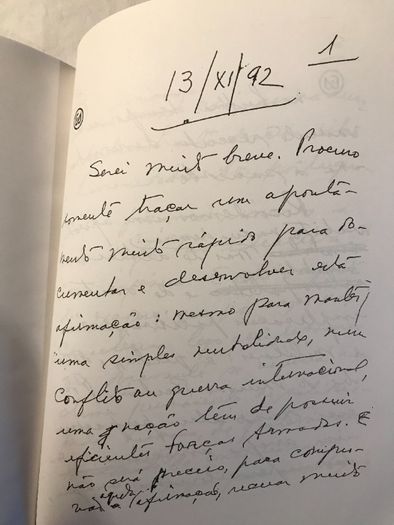 1
13/XI/92
Serei muito breve. Procuro
somente traçar um aponta-
mento muito rápido para do-
cumentar e desenvolver esta
afirmação: mesmo para manter
uma simples neutralidade, num
conflito ou guerra internacional,
uma nação têm de possuir
eficientes forças armadas. E
não será preciso, para compro-
var a afirmação, recuar muito